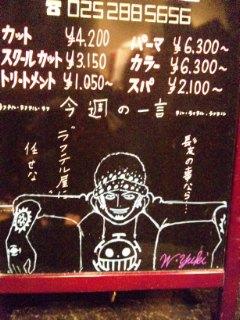 ☎ 025 288 5656
カット ¥4,200
スクールカット ¥3,150
トリートメント ¥1,050~
パーマ ¥6,300~
カラー ¥6,300~
スパ ¥2,100~
今週の一言
髪の事なら…
"ラフテル屋"に
任せな
W-Yuki